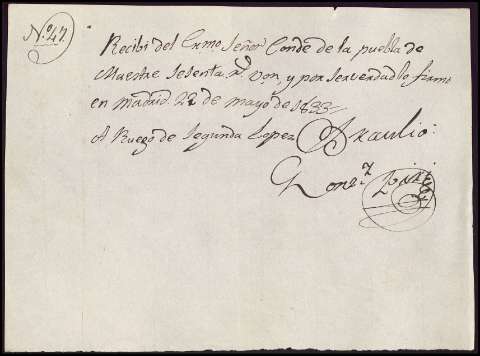 N.º 47.
Recibi del Exmo. Señor Conde de la puebla de
Maestre sesenta r.s von, y por ser verdad lo firmo
en Madrid 22 de mayo de 1833.
A Ruego de Segunda Lopez Braulio
Gonz.z